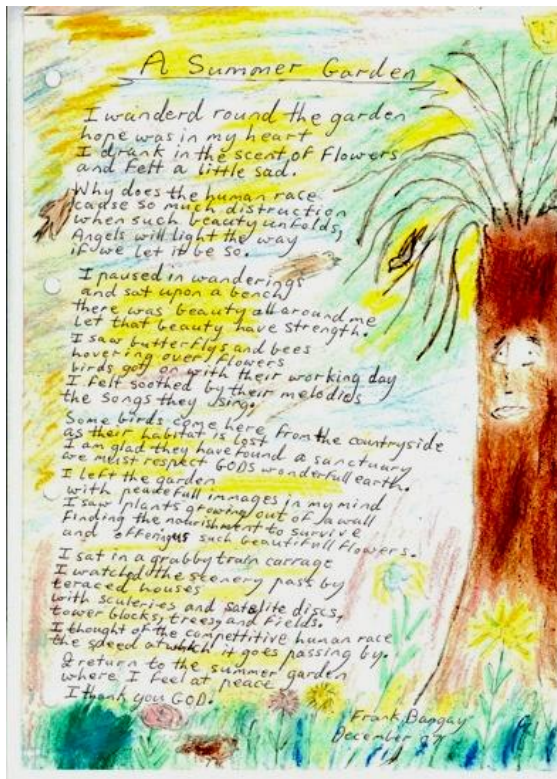 A Summer Garden
I wanderd round the garden
hope was in my heart
I drank in the scent of Flowers
and felt a little sad.
Why does the human race
cause so much distruction
when such beauty unfolds,
Angels will light the way
if we let it be so.
I paused in wanderings
and sat upon a bench
there was beauty all around me
let that beauty have strength.
I saw butterflys and bees
hovering over flowers
birds got on with their working day
I felt soothed by their melodies
the songs they sing.
Some birds come here from the countryside
as their habitat is lost
I am glad they have found a sanctuary
we must respect GODS wonderfull earth.
I left the garden
with peacefull immages in my mind
I saw plants growing out of a wall
Finding the nourishment to survive
and offering us such beautifull flowers.
I sat in a grubby train carrage
I watched the scenery past by
teraced houses
with sculeries and satelite discs,
tower blocks, trees, and fields.
I thought of the competitive human race
the speed at which it goes passing by.
I return to the summer garden
where I feel at peace
I thank you GOD.
Frank Bangay
December 07